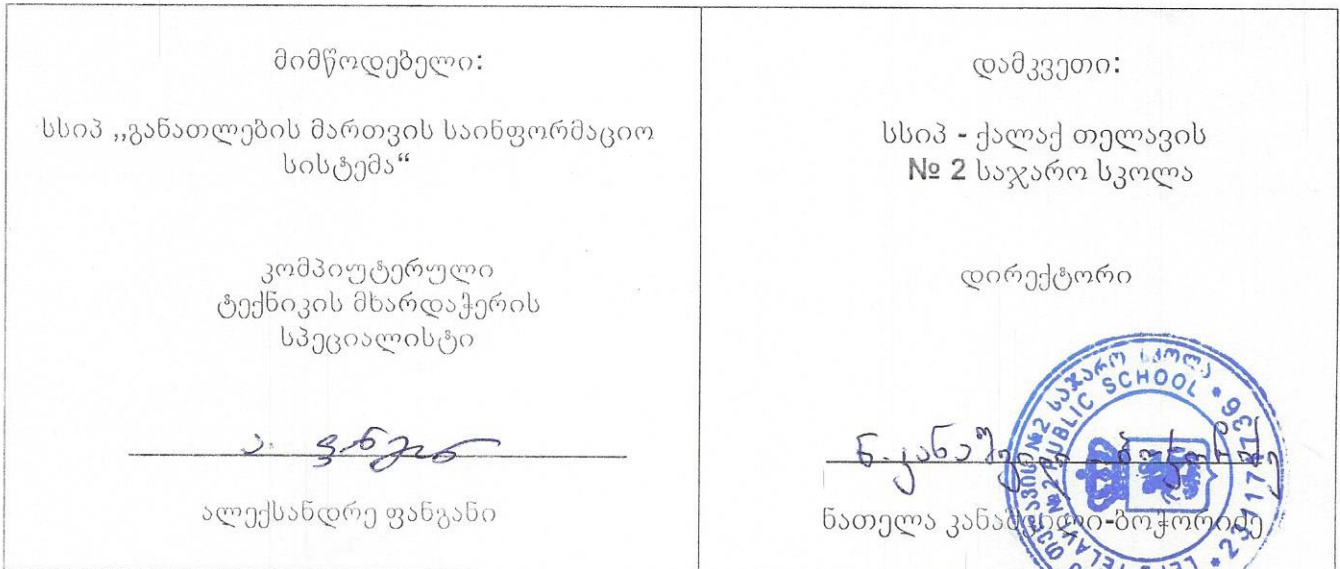 მიმწოდებელი:
სსიპ „განათლების მართვის საინფორმაციო
სისტემა“
კომპიუტერული
ტექნიკის მხარდაჭერის
სპეციალისტი
ა. ფანგანი
ალექსანდრე ფანგანი
დამკვეთი:
სსიპ - ქალაქ თელავის
№ 2 საჯარო სკოლა
დირექტორი
ნათელა კანაშვილი-ბოჭორიძე
საჯარო სკოლა
PUBLIC SCHOOL